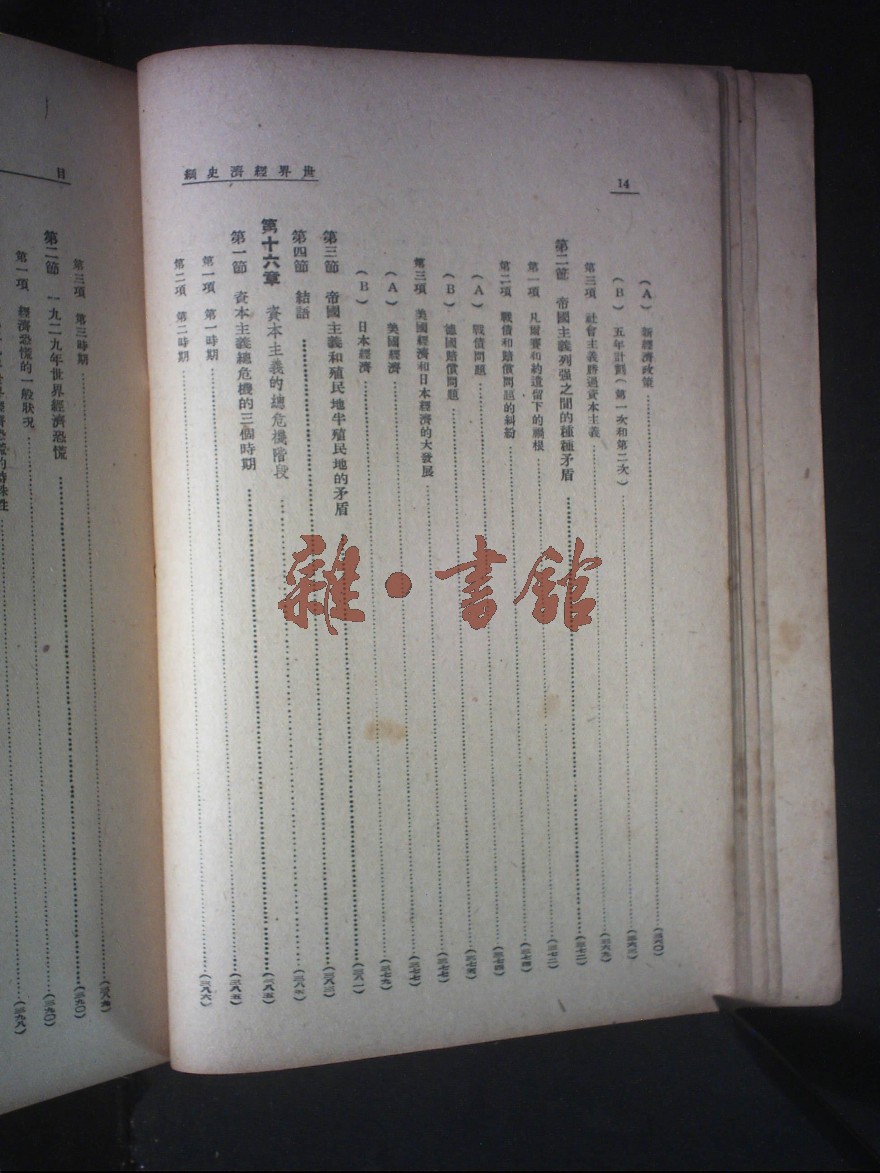 14
世界經濟史綱
(A) 新經濟政策……(三六〇)
(B) 五年計劃(第一次和第二次)……
第三項 社會主義勝過資本主義……(三六九)
第二節 帝國主義列强之間的種種矛盾……(三七二)
第一項 凡爾賽和約遺留下的禍根……(三七二)
第二項 戰債和賠償問題的糾紛……(三七四)
(A) 戰債問題……(三七四)
(B) 德國賠償問題……(三七五)
第三項 美國經濟和日本經濟的大發展……(三七七)
(A) 美國經濟……(三七九)
(B) 日本經濟……(三八一)
第三節 帝國主義和殖民地半殖民地的矛盾……(三八三)
第四節 結語……
第十六章 資本主義的總危機階段……(三八五)
第一節 資本主義總危機的三個時期……(三八五)
第一項 第一時期……
第二項 第二時期……(三八六)
雜·書館
目
第三項 第三時期……(三八九)
第二節 一九二九年世界經濟恐慌……(三九〇)
第一項 經濟恐慌的一般狀況……
世界經濟恐慌的特殊性